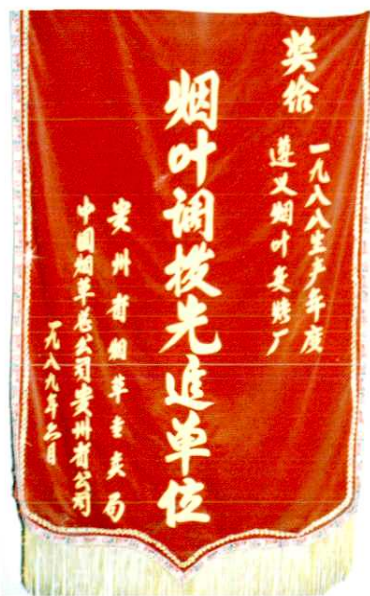 奖给
一九八八生产年度
遵义烟叶复烤厂
烟叶调拨先进单位
贵州省烟草专卖局
中国烟草总公司贵州省公司
一九八九年二月